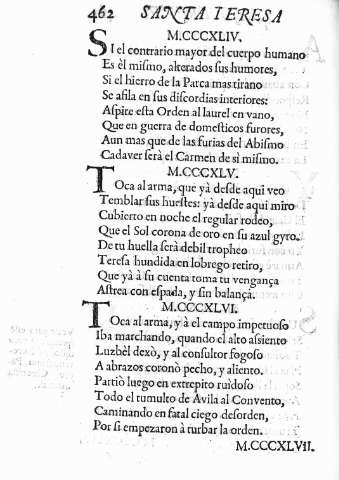 462 SANTA TERESA
M.CCCXLIV.
SI el contrario mayor del cuerpo humano
Es èl mismo, alterados sus humores,
Si el hierro de la Parca mas tirano
Se afila en sus discordias interiores:
Aspire esta Orden al laurel en vano,
Que en guerra de domesticos furores,
Aun mas que de las furias del Abismo
Cadaver serà el Carmen de si mismo.
M.CCCXLV.
TOca al arma, que yà desde aqui veo
Temblar sus huestes: yà desde aqui miro
Cubierto en noche el regular rodeo,
Que el Sol corona de oro en su azul gyro.
De tu huella serà debil tropheo
Teresa hundida en lobrego retiro,
Que yà à su cuenta toma tu vengança
Astrea con espada, y sin balança.
M.CCCXLVI.
TOca al arma, y à el campo impetuoso
Iba marchando, quando el alto assiento
Luzbèl dexò, y al consultor fogoso
A abrazos coronò pecho, y aliento.
Partiò luego en extrepito ruidoso
Todo el tumulto de Avila al Convento,
Caminando en fatal ciego desorden,
Por si empezaron à turbar la orden.
M.CCCXLVII.